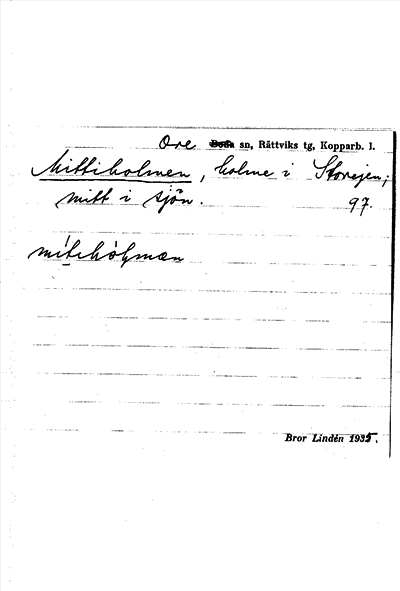 Ore Boda sn, Rättviks tg, Kopparb. l.
Mittiholmen, holme i Storejen,
mitt i sjön. 97.
Bror Lindén 1935.